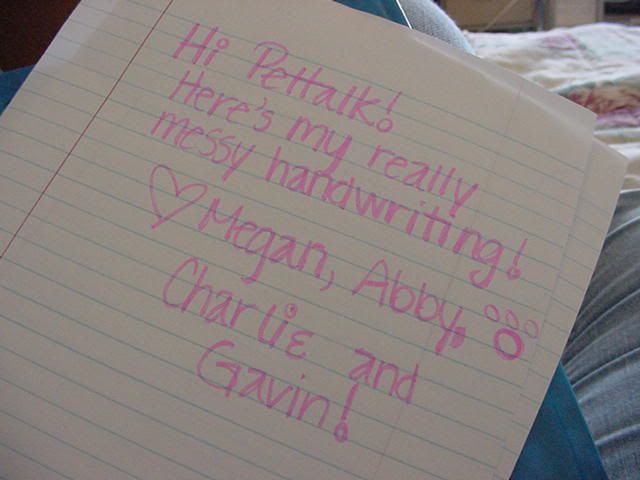 Hi Pettalk!
Here's my really
messy handwriting!
♡ Megan, Abby,
Charlie and
Gavin!